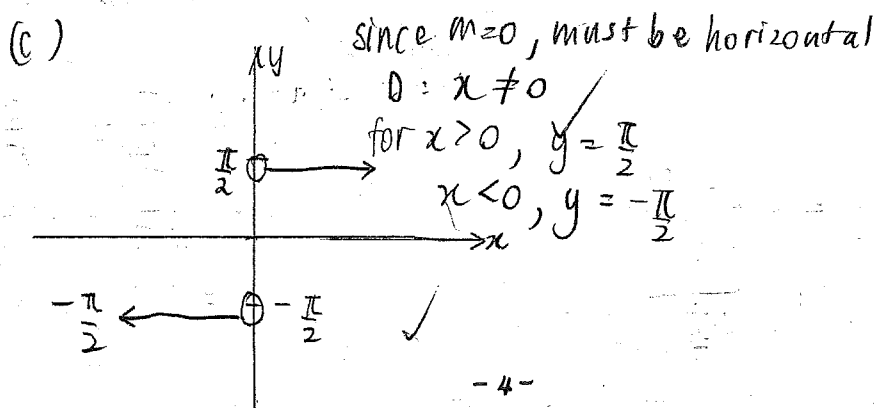 (c)
since m=0, must be horizontal
y
D : x ≠ 0
for x>0, y = π/2
π/2
x<0, y = -π/2
x
-π/2
-π/2
-4-